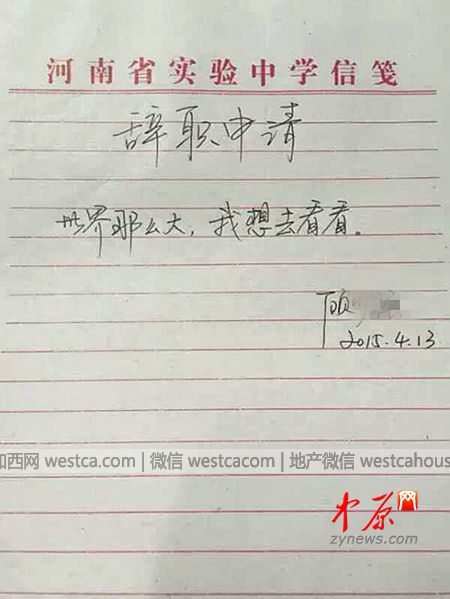 河南省实验中学信笺
辞职申请
世界那么大，我想去看看。
顾
2015.4.13
加西网 westca.com | 微信 westcacom | 地产微信 westcahous
中原网
zynews.com